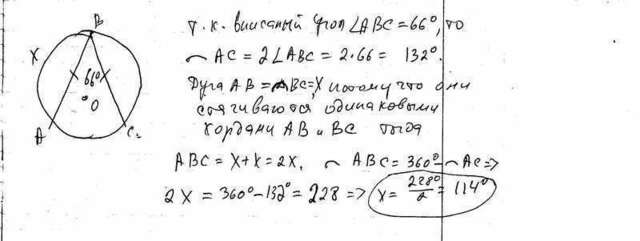 B
X
66°
O
A
C
т.к. вписаный угол ∠ABC=66°, то
◠ AC = 2∠ABC = 2·66 = 132°.
Дуга AB = ◠BC=X потому что они
стягиваются одинаковыми
хордами AB и BC тогда
ABC = X+X = 2X, ◠ ABC = 360° - ◠ AC =>
2X = 360° - 132° = 228 => X = 228°/2 = 114°